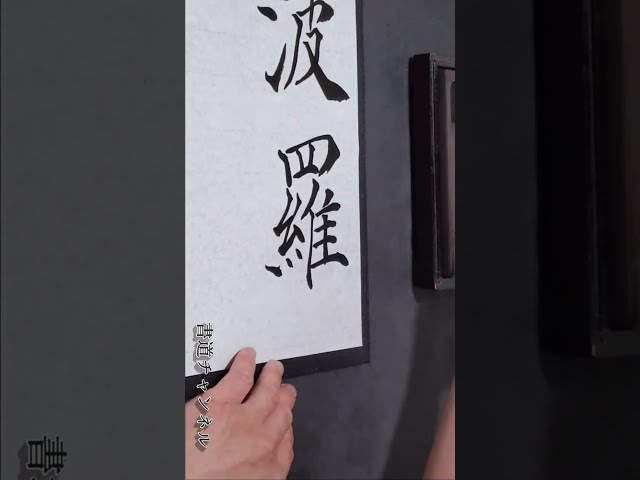 波羅
書道チャンネル
書